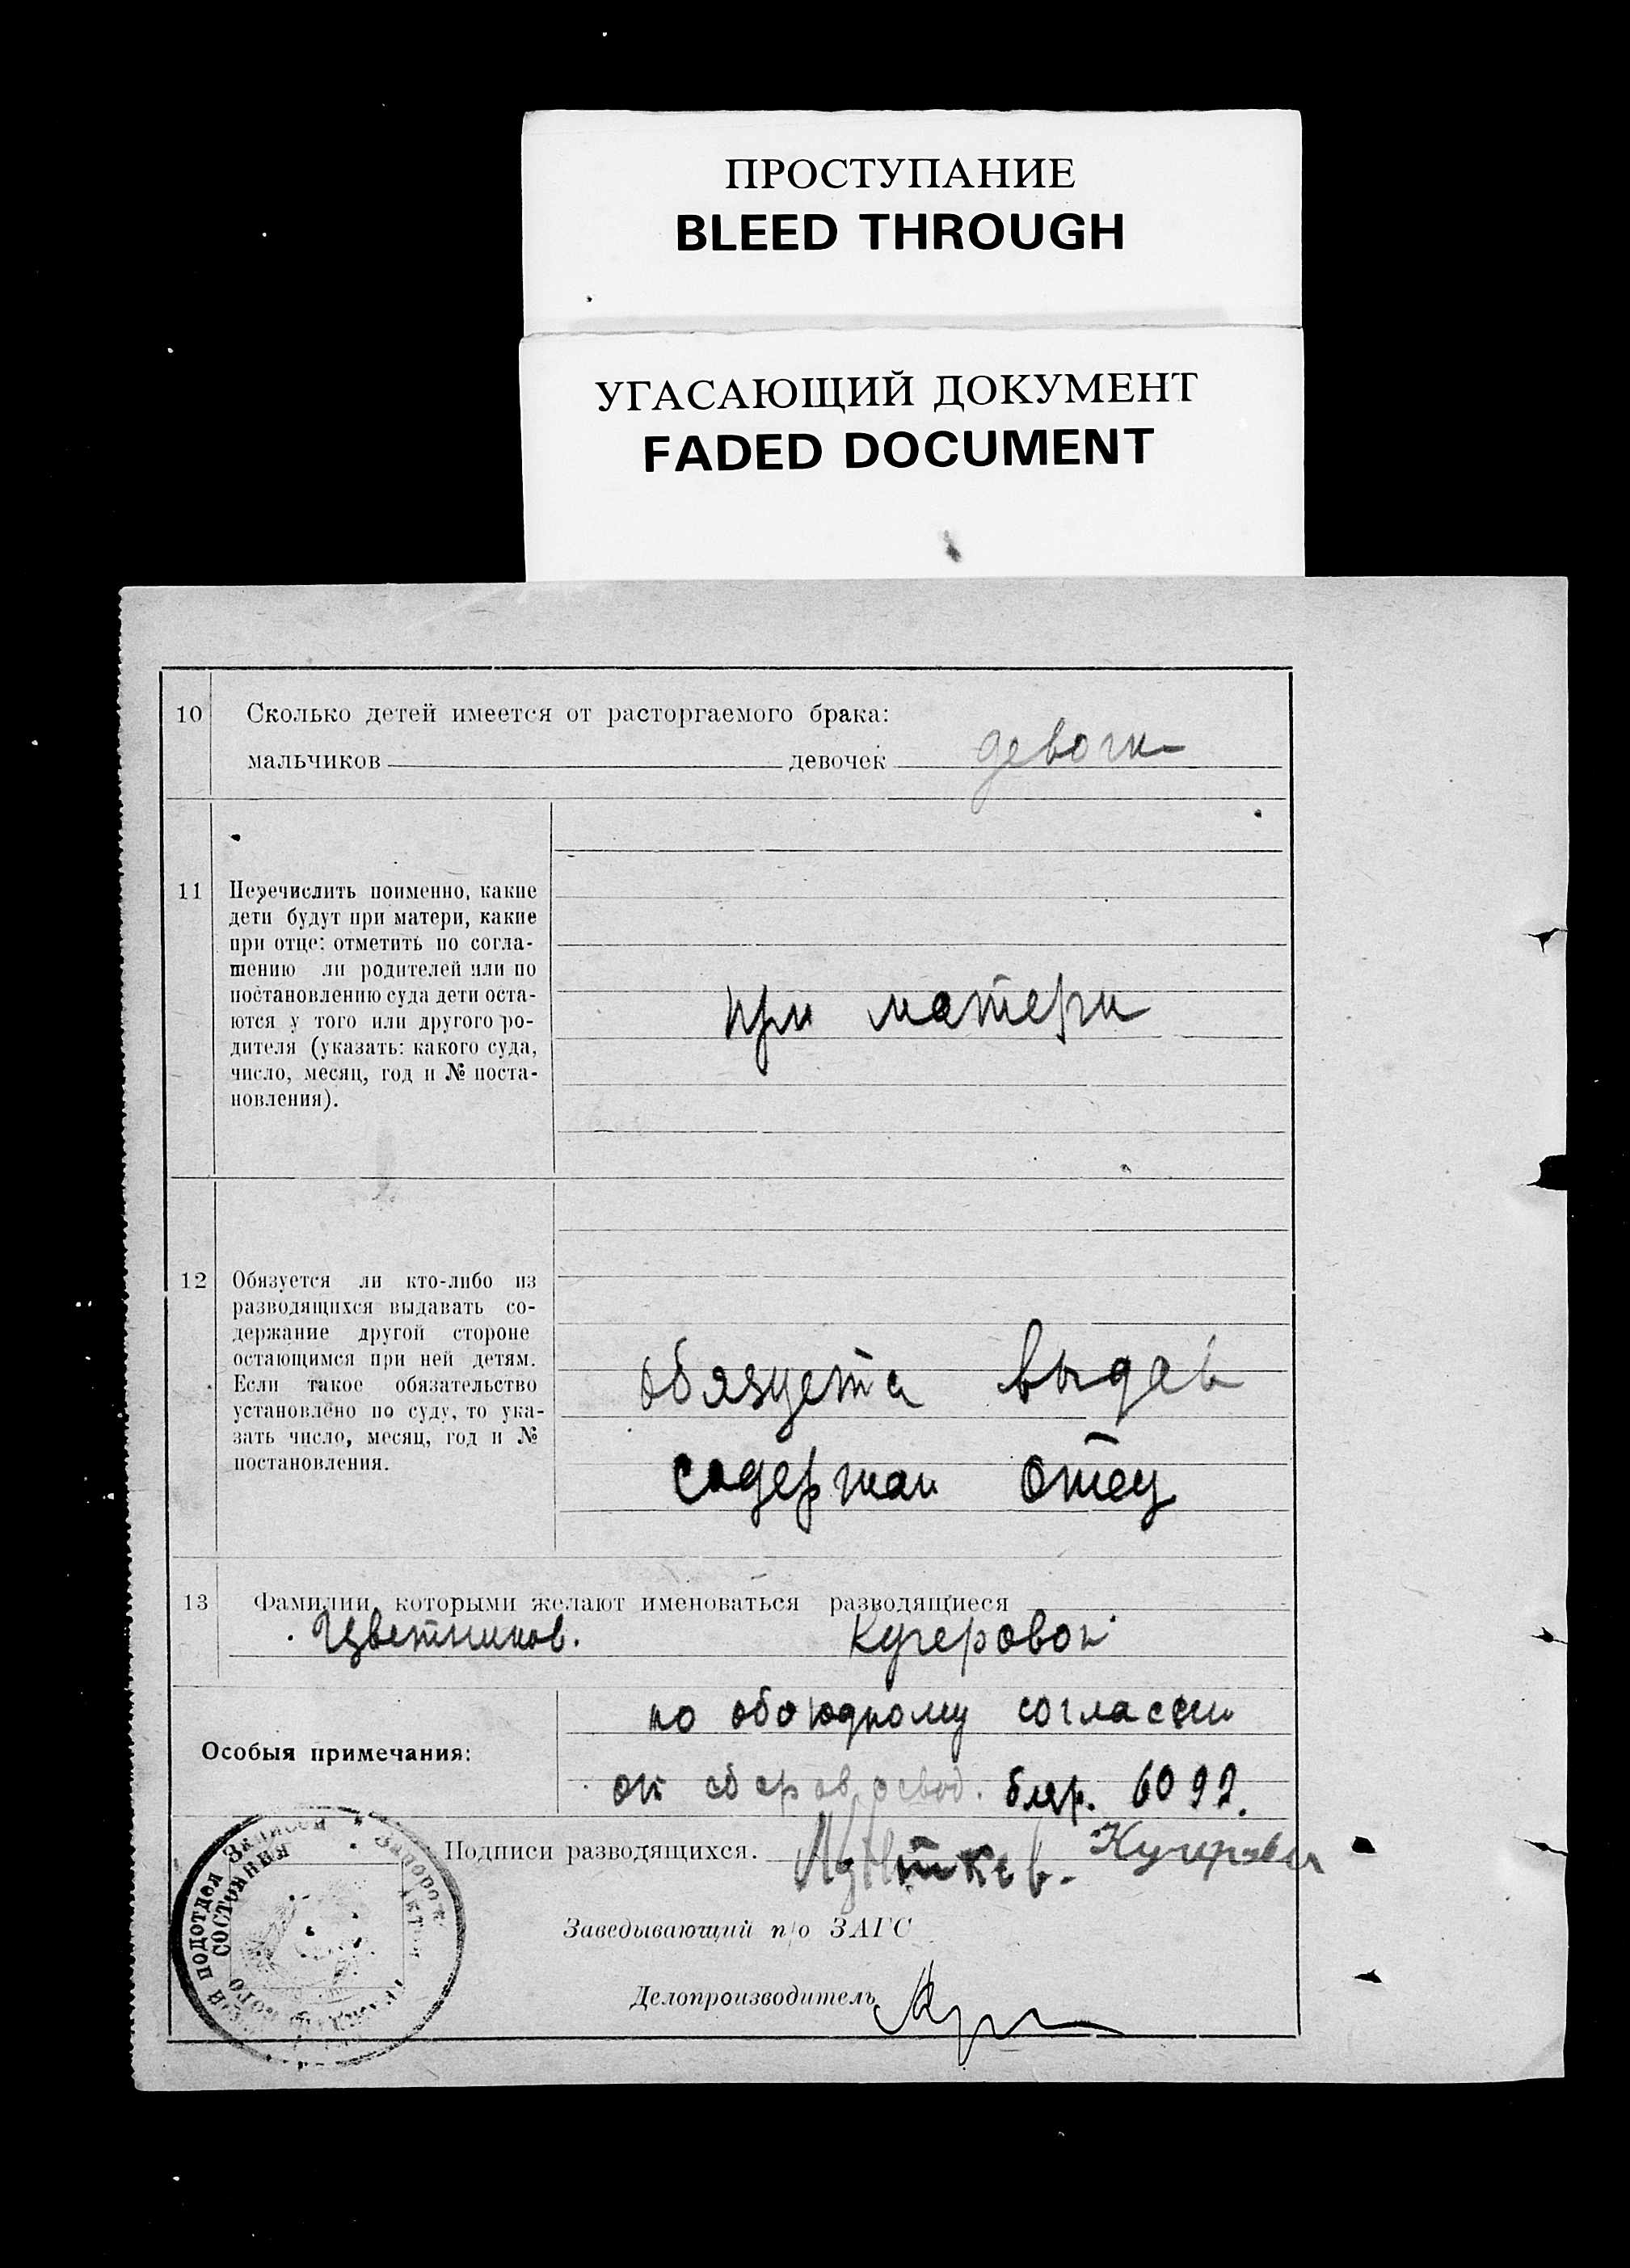 ПРОСТУПАНИЕ
BLEED THROUGH
УГАСАЮЩИЙ ДОКУМЕНТ
FADED DOCUMENT
10 Сколько детей имеется от расторгаемого брака:
мальчиков девочек девочк
11 Перечислить поименно, какие
дети будут при матери, какие
при отце: отметить по согла-
шению ли родителей или по
постановлению суда дети оста-
ются у того или другого ро-
дителя (указать: какого суда,
число, месяц, год и № поста-
новления).
при матери
12 Обязуется ли кто-либо из
разводящихся выдавать со-
держание другой стороне
остающимся при ней детям.
Если такое обязательство
установлено по суду, то ука-
зать число, месяц, год и №
постановления.
обязуетса выдав
содержан отец
13 Фамилии, которыми желают именоваться разводящиеся
Цветников. Кучеровой
Особыя примечания:
по обоюдному согласии
от сбора 6092.
Подписи разводящихся. Кучерова
Заведывающий п/о ЗАГС
Делопроизводитель
подотдел Записи
состояния
Запорож